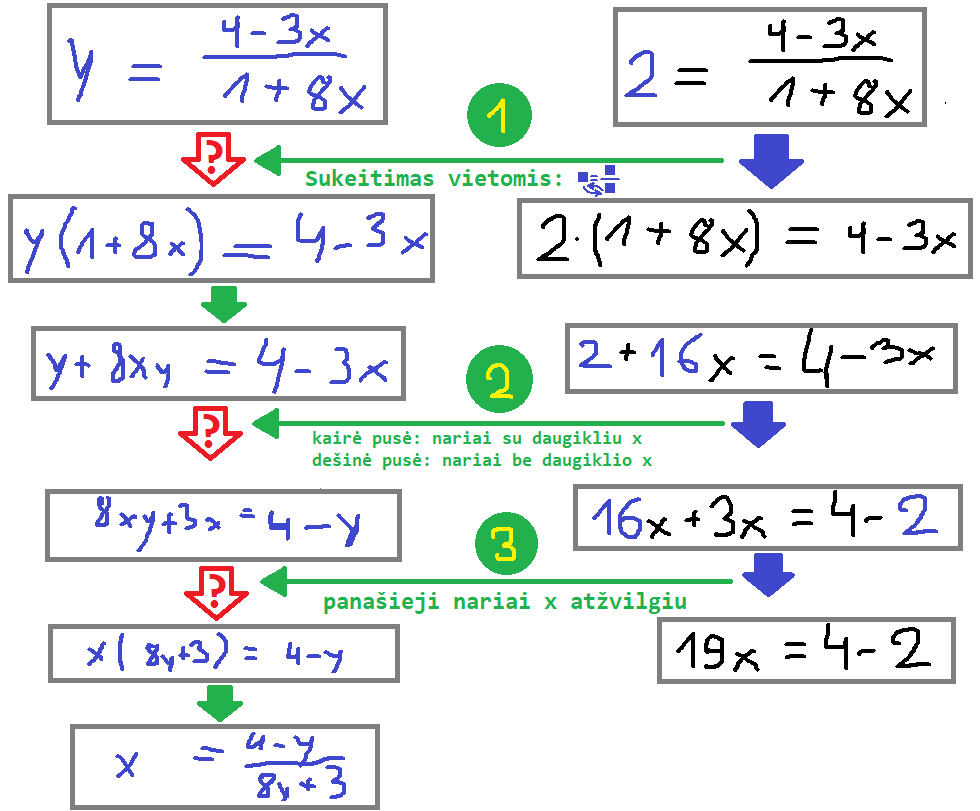 y = (4 - 3x)/(1 + 8x)
2 = (4 - 3x)/(1 + 8x)
1
?
Sukeitimas vietomis:
y(1 + 8x) = 4 - 3x
2·(1 + 8x) = 4 - 3x
y + 8xy = 4 - 3x
2 + 16x = 4 - 3x
2
?
kairė pusė: nariai su daugikliu x
dešinė pusė: nariai be daugiklio x
8xy + 3x = 4 - y
16x + 3x = 4 - 2
3
?
panašieji nariai x atžvilgiu
x(8y + 3) = 4 - y
19x = 4 - 2
x = (4 - y)/(8y + 3)